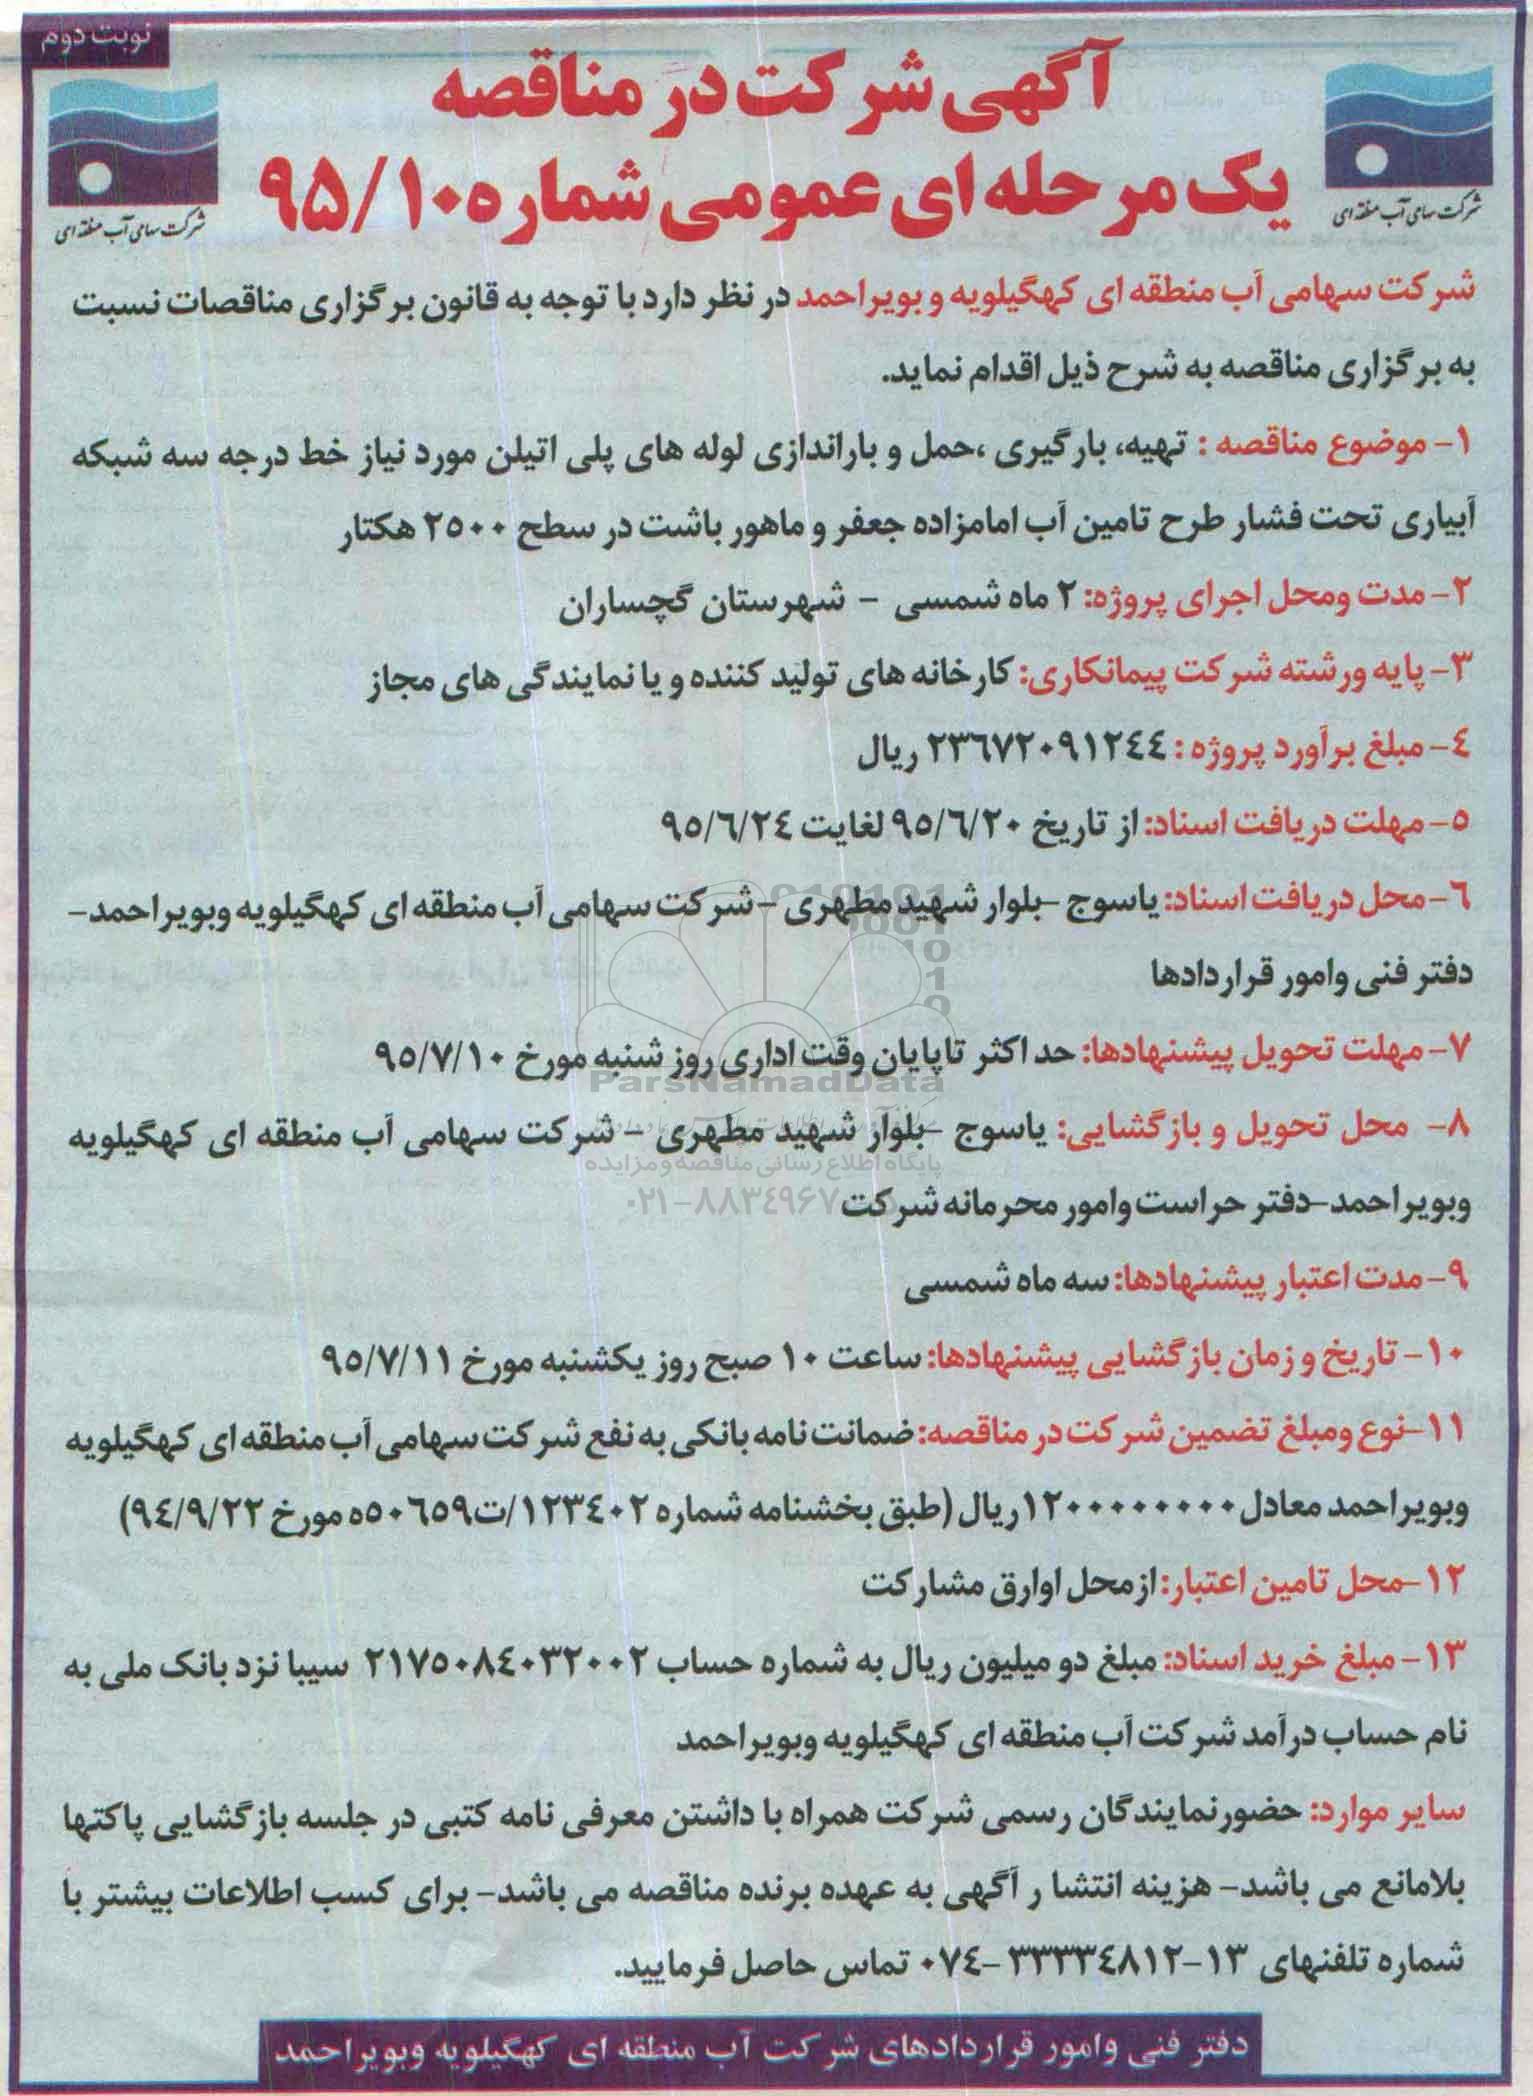 نوبت دوم
آگهی شرکت در مناقصه
یک مرحله ای عمومی شماره ۹۵/۱۰
شرکت سهامی آب منطقه ای
شرکت سهامی آب منطقه ای
شرکت سهامی آب منطقه ای کهگیلویه و بویراحمد در نظر دارد با توجه به قانون برگزاری مناقصات نسبت
به برگزاری مناقصه به شرح ذیل اقدام نماید.
۱- موضوع مناقصه : تهیه، بارگیری ،حمل و باراندازی لوله های پلی اتیلن مورد نیاز خط درجه سه شبکه
آبیاری تحت فشار طرح تامین آب امامزاده جعفر و ماهور باشت در سطح ۲۵۰۰ هکتار
۲- مدت ومحل اجرای پروژه: ۲ ماه شمسی - شهرستان گچساران
۳- پایه ورشته شرکت پیمانکاری: کارخانه های تولید کننده و یا نمایندگی های مجاز
۴- مبلغ برآورد پروژه : ۲۳۶۷۲۰۹۱۲۴۴ ریال
۵- مهلت دریافت اسناد: از تاریخ ۹۵/۶/۲۰ لغایت ۹۵/۶/۲۴
۶- محل دریافت اسناد: یاسوج -بلوار شهید مطهری -شرکت سهامی آب منطقه ای کهگیلویه وبویراحمد-
دفتر فنی وامور قراردادها
۷- مهلت تحویل پیشنهادها: حد اکثر تاپایان وقت اداری روز شنبه مورخ ۹۵/۷/۱۰
ParsNamadData
۸- محل تحویل و بازگشایی: یاسوج -بلوار شهید مطهری - شرکت سهامی آب منطقه ای کهگیلویه
پایگاه اطلاع رسانی مناقصه و مزایده
وبویراحمد-دفتر حراست وامور محرمانه شرکت
۰۲۱-۸۸۳۴۹۶۷
۹- مدت اعتبار پیشنهادها: سه ماه شمسی
۱۰- تاریخ و زمان بازگشایی پیشنهادها: ساعت ۱۰ صبح روز یکشنبه مورخ ۹۵/۷/۱۱
۱۱-نوع ومبلغ تضمین شرکت در مناقصه: ضمانت نامه بانکی به نفع شرکت سهامی آب منطقه ای کهگیلویه
وبویراحمد معادل ۱۲۰۰۰۰۰۰۰۰۰ریال (طبق بخشنامه شماره ۱۲۳۴۰۲/ت۵۰۶۵۹ه مورخ ۹۴/۹/۲۲)
۱۲-محل تامین اعتبار: ازمحل اوارق مشارکت
۱۳- مبلغ خرید اسناد: مبلغ دو میلیون ریال به شماره حساب ۲۱۷۵۰۸۴۰۳۲۰۰۲ سیبا نزد بانک ملی به
نام حساب درآمد شرکت آب منطقه ای کهگیلویه وبویراحمد
سایر موارد: حضورنمایندگان رسمی شرکت همراه با داشتن معرفی نامه کتبی در جلسه بازگشایی پاکتها
بلامانع می باشد- هزینه انتشا ر آگهی به عهده برنده مناقصه می باشد- برای کسب اطلاعات بیشتر با
شماره تلفنهای ۱۳-۳۳۳۳۴۸۱۲-۰۷۴ تماس حاصل فرمایید.
دفتر فنی وامور قراردادهای شرکت آب منطقه ای کهگیلویه وبویراحمد